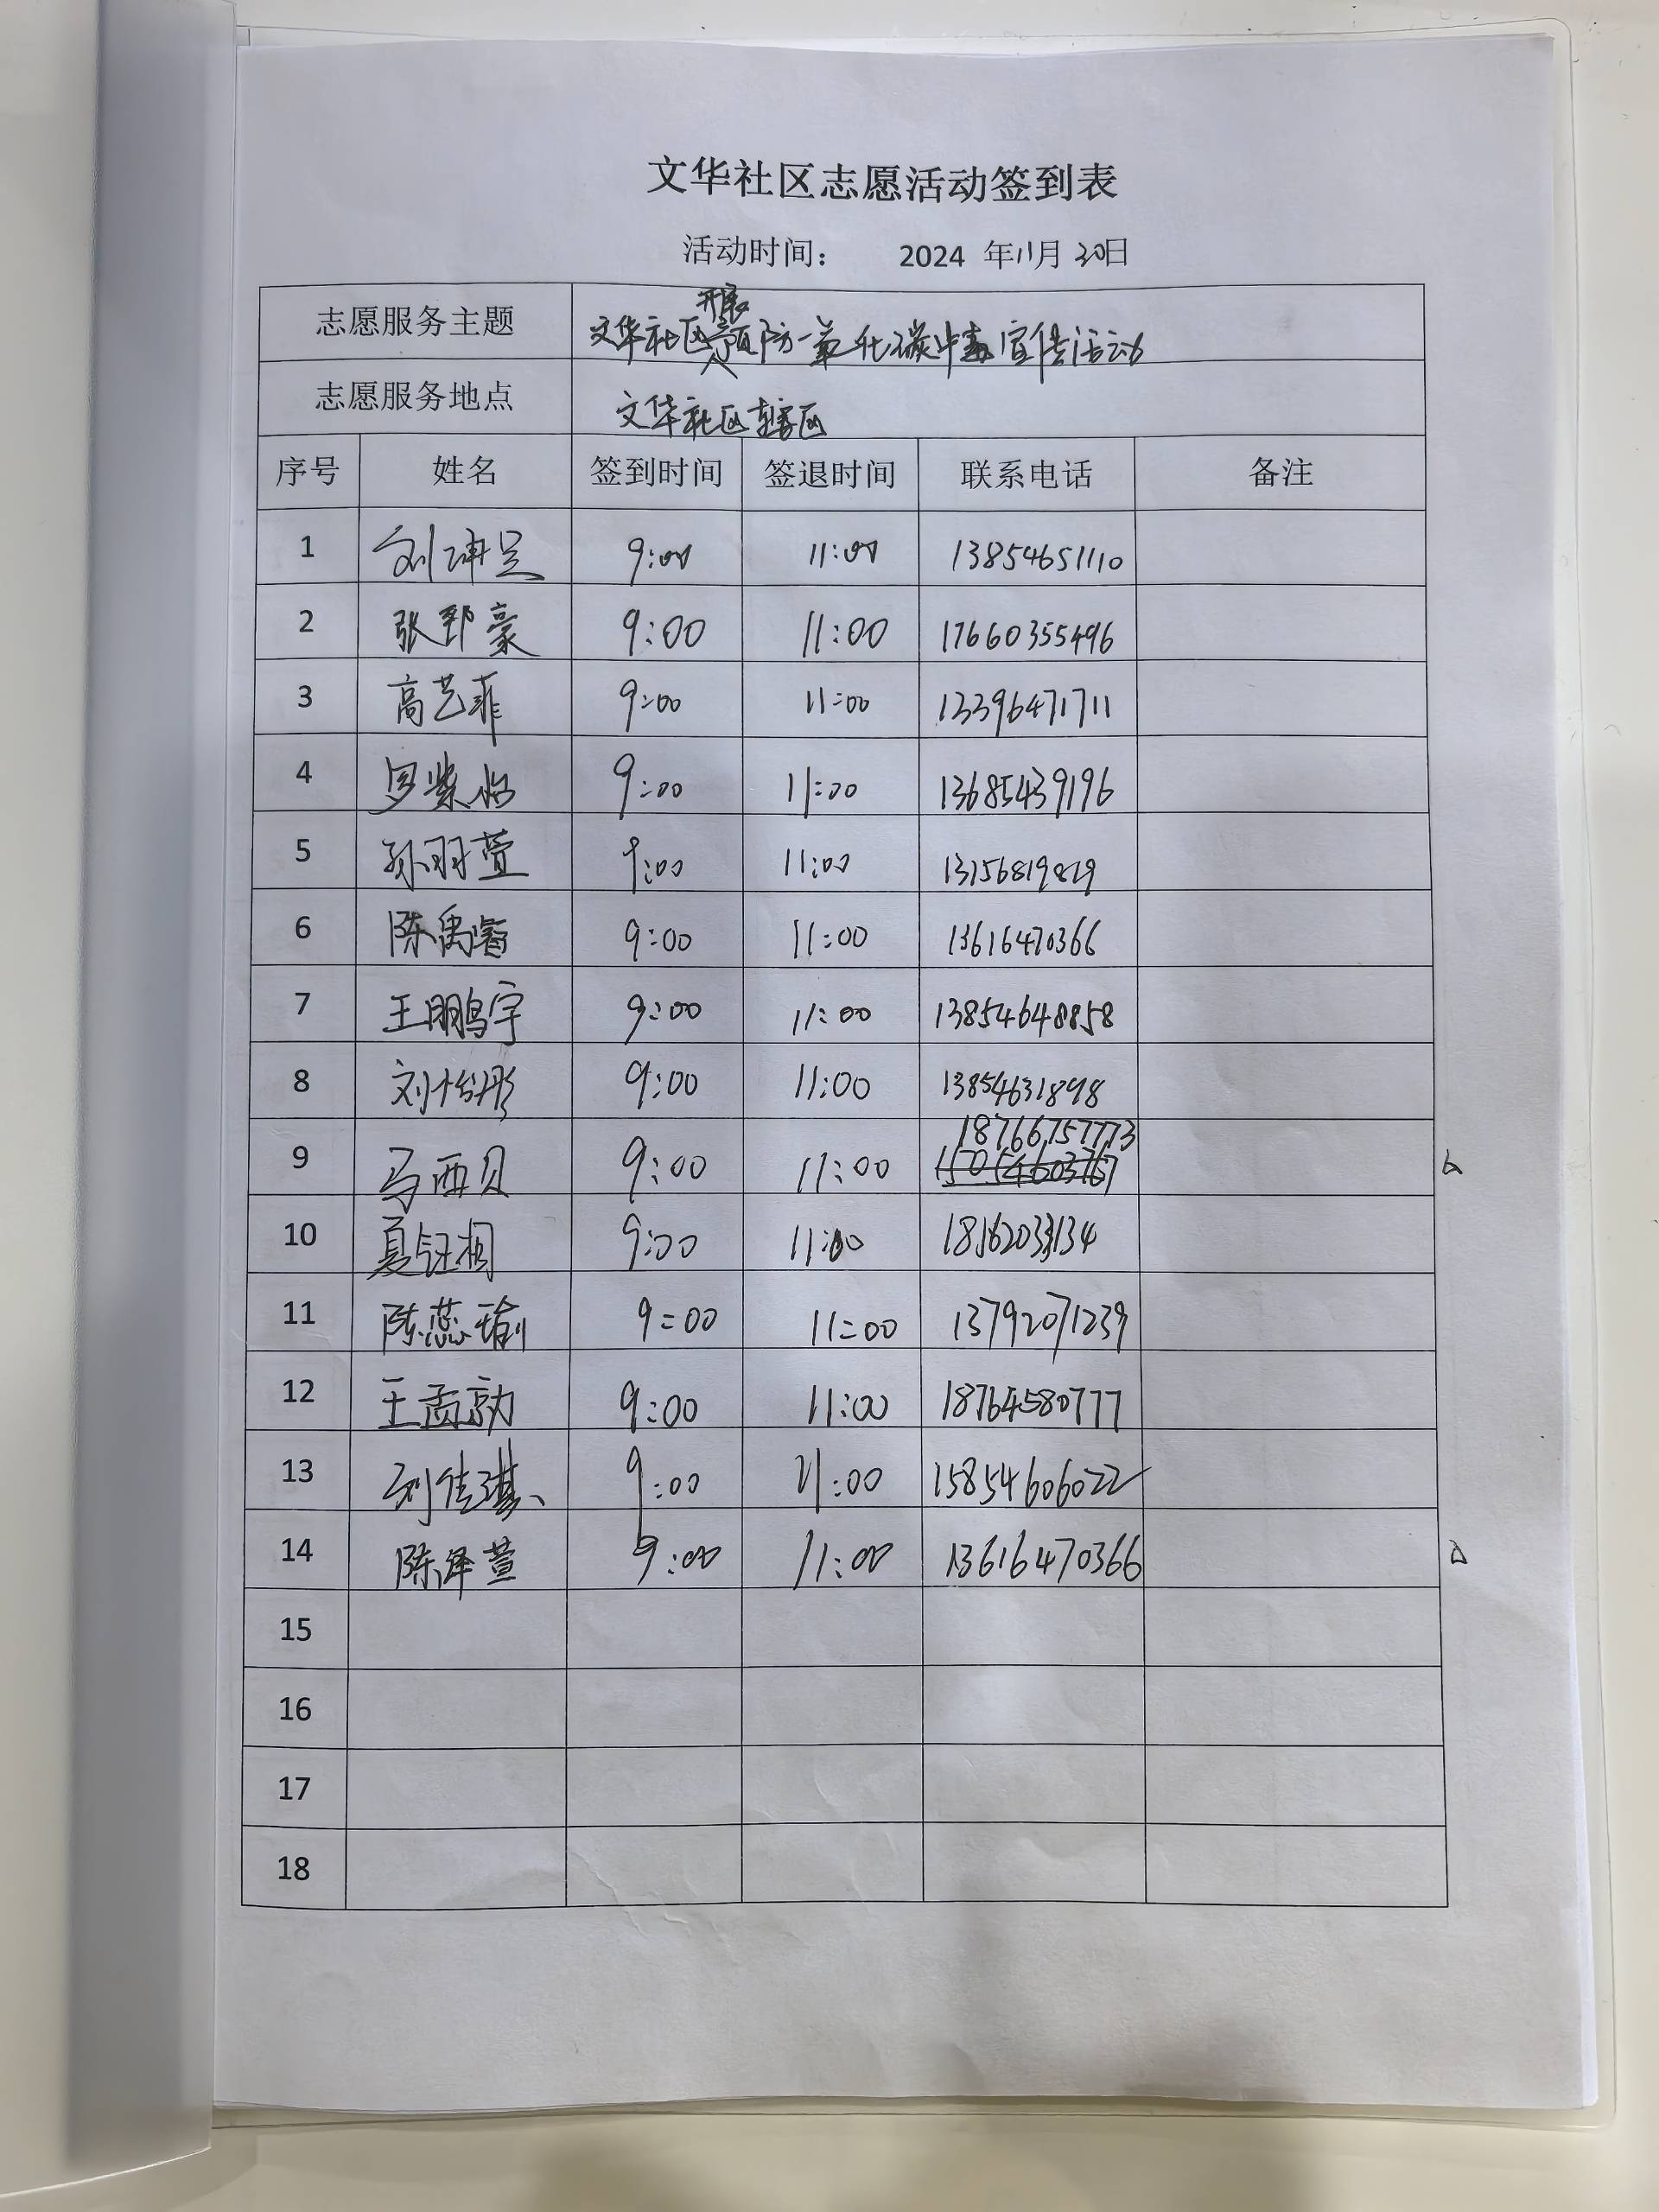 文华社区志愿活动签到表
活动时间： 2024 年11月30日
志愿服务主题 文华社区开展预防一氧化碳中毒宣传活动
志愿服务地点 文华社区辖区
序号 姓名 签到时间 签退时间 联系电话 备注
1 刘 9:00 11:00 13854651110
2 张郅豪 9:00 11:00 17660355496
3 高艺菲 9:00 11:00 13396471711
4 罗紫怡 9:00 11:00 13685439196
5 孙羽萱 9:00 11:00 13156819829
6 陈禹睿 9:00 11:00 13616470366
7 王鹏宇 9:00 11:00 13854648858
8 刘怡彤 9:00 11:00 13854631898
9 马西贝 9:00 11:00 18766757773
10 夏钰桐 9:00 11:00
11 陈蕊瑜 9:00 11:00 13792071239
12 王孟勍 9:00 11:00 18764580777
13 刘佳琪 9:00 11:00 15854606022
14 陈泽萱 9:00 11:00 13616470366
15
16
17
18